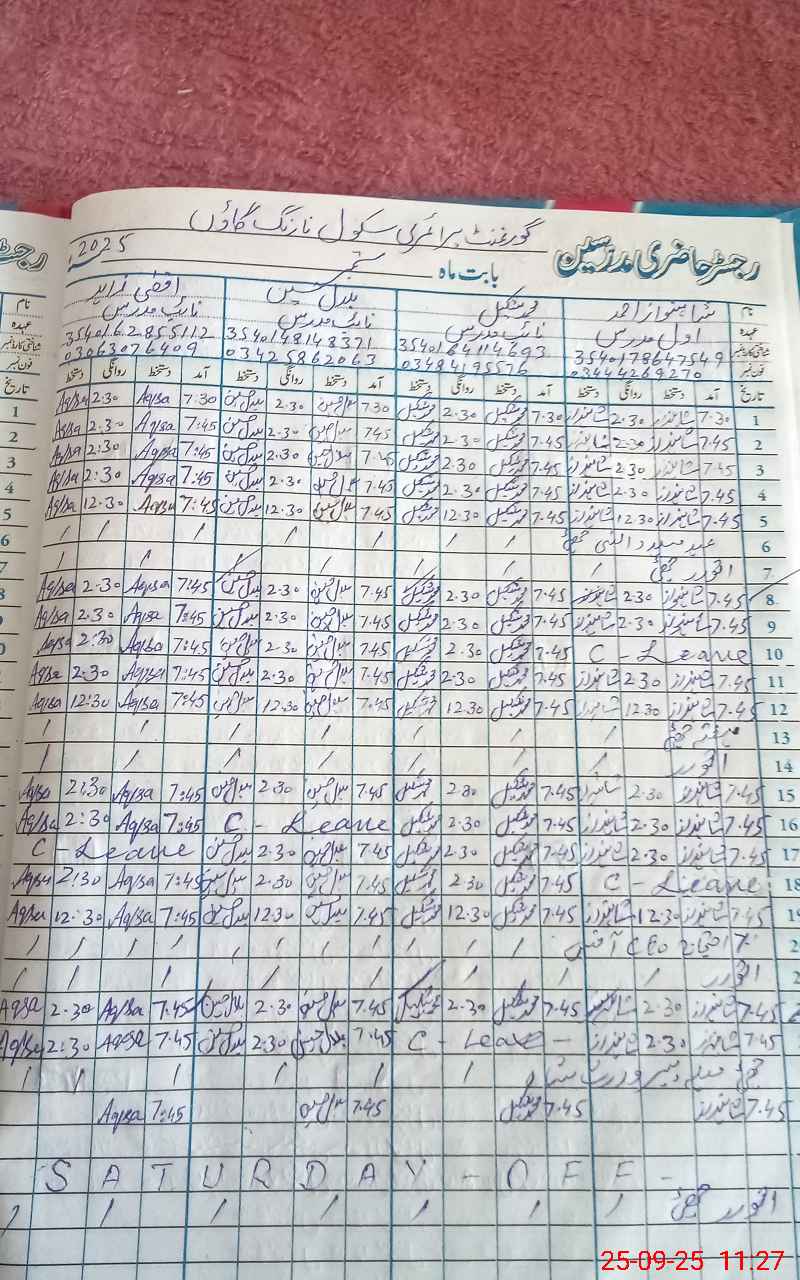 گورنمنٹ پرائمری سکول نارنگ گاؤں
رجسٹر حاضری مدرسین بابت ماہ ستمبر 2025
نام شاہنواز احمد محمد شکیل بدل حسین اقصیٰ زاہد
عہدہ اول مدرس نائب مدرس نائب مدرس نائب مدرس
شناختی کارڈ نمبر 3540178647549 3540164114693 3540148148371 3540162855112
فون نمبر 03444269270 03484195576 03425862063 03063076409
تاریخ آمد دستخط روانگی دستخط آمد دستخط روانگی دستخط آمد دستخط روانگی دستخط آمد دستخط روانگی دستخط
1 7.30 شاہنواز 2.30 شاہنواز 7.30 محمد شکیل 2.30 محمد شکیل 7.30 بدل حسین 2.30 بدل حسین 7.30 Aqsa 2.30 Aqsa
2 7.45 شاہنواز 2.30 شاہنواز 7.45 محمد شکیل 2.30 محمد شکیل 7.45 بدل حسین 2.30 بدل حسین 7:45 Aqsa 2.30 Aqsa
3 7.45 شاہنواز 2.30 شاہنواز 7.45 محمد شکیل 2.30 محمد شکیل 7.45 بدل حسین 2.30 بدل حسین 7:45 Aqsa 2:30 Aqsa
4 7.45 شاہنواز 2.30 شاہنواز 7.45 محمد شکیل 2.30 محمد شکیل 7.45 بدل حسین 2.30 بدل حسین 7.45 Aqsa 2:30 Aqsa
5 7.45 شاہنواز 12.30 شاہنواز 7.45 محمد شکیل 12.30 محمد شکیل 7.45 بدل حسین 12.30 بدل حسین 7:45 Aqsa 12.30 Aqsa
6 عید میلاد النبی چھٹی / / / / / / /
7 اتوار چھٹی / / / / / /
8 7.45 شاہنواز 2.30 شاہنواز 7.45 محمد شکیل 2.30 محمد شکیل 7.45 بدل حسین 2.30 بدل حسین 7:45 Aqsa 2.30 Aqsa
9 7.45 شاہنواز 2.30 شاہنواز 7.45 محمد شکیل 2.30 محمد شکیل 7.45 بدل حسین 2.30 بدل حسین 7:45 Aqsa 2.30 Aqsa
10 C - Leane 7.45 محمد شکیل 2.30 محمد شکیل 7.45 بدل حسین 2.30 بدل حسین 7:45 Aqsa 2:30 Aqsa
11 7.45 شاہنواز 2.30 شاہنواز 7.45 محمد شکیل 2.30 محمد شکیل 7.45 بدل حسین 2.30 بدل حسین 7:45 Aqsa 2.30 Aqsa
12 7.45 شاہنواز 12.30 شاہنواز 7.45 محمد شکیل 12.30 محمد شکیل 7.45 بدل حسین 12.30 بدل حسین 7:45 Aqsa 12:30 Aqsa
13 ہفتہ چھٹی / / / / / /
14 اتوار / / / / / / /
15 7.45 شاہنواز 2.30 شاہنواز 7.45 محمد شکیل 2.30 محمد شکیل 7.45 بدل حسین 2.30 بدل حسین 7:45 Aqsa 2:30 Aqsa
16 7.45 شاہنواز 2.30 شاہنواز 7.45 محمد شکیل 2.30 محمد شکیل C - Leane 7:45 Aqsa 2:30 Aqsa
17 7.45 شاہنواز 2.30 شاہنواز 7.45 محمد شکیل 2.30 محمد شکیل 7.45 بدل حسین 2.30 بدل حسین C - Leane
18 C - Leane 7.45 محمد شکیل 2.30 محمد شکیل 7.45 بدل حسین 2.30 بدل حسین 7:45 Aqsa 2:30 Aqsa
19 7.45 شاہنواز 12.30 شاہنواز 7.45 محمد شکیل 12.30 محمد شکیل 7.45 بدل حسین 12.30 بدل حسین 7:45 Aqsa 12:30 Aqsa
2 CEO آفس / / / / / / / /
2 اتوار / / / / / / / /
7.45 شاہنواز 2.30 شاہنواز 7.45 محمد شکیل 2.30 محمد شکیل 7.45 بدل حسین 2.30 بدل حسین 7.45 Aqsa 2.30 Aqsa
7.45 شاہنواز 2.30 شاہنواز C - Leane - 7.45 بدل حسین 2.30 بدل حسین 7.45 Aqsa 2:30 Aqsa
چھٹی میلہ / / / / / / /
7.45 شاہنواز 7.45 محمد شکیل 7.45 بدل حسین 7:45 Aqsa
SATURDAY - OFF -
اتوار چھٹی / / / / / / /
25-09-25 11:27